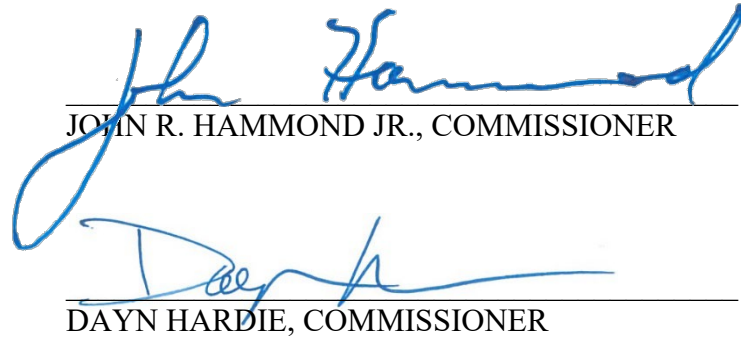 John Hammond
JOHN R. HAMMOND JR., COMMISSIONER
DAYN HARDIE, COMMISSIONER